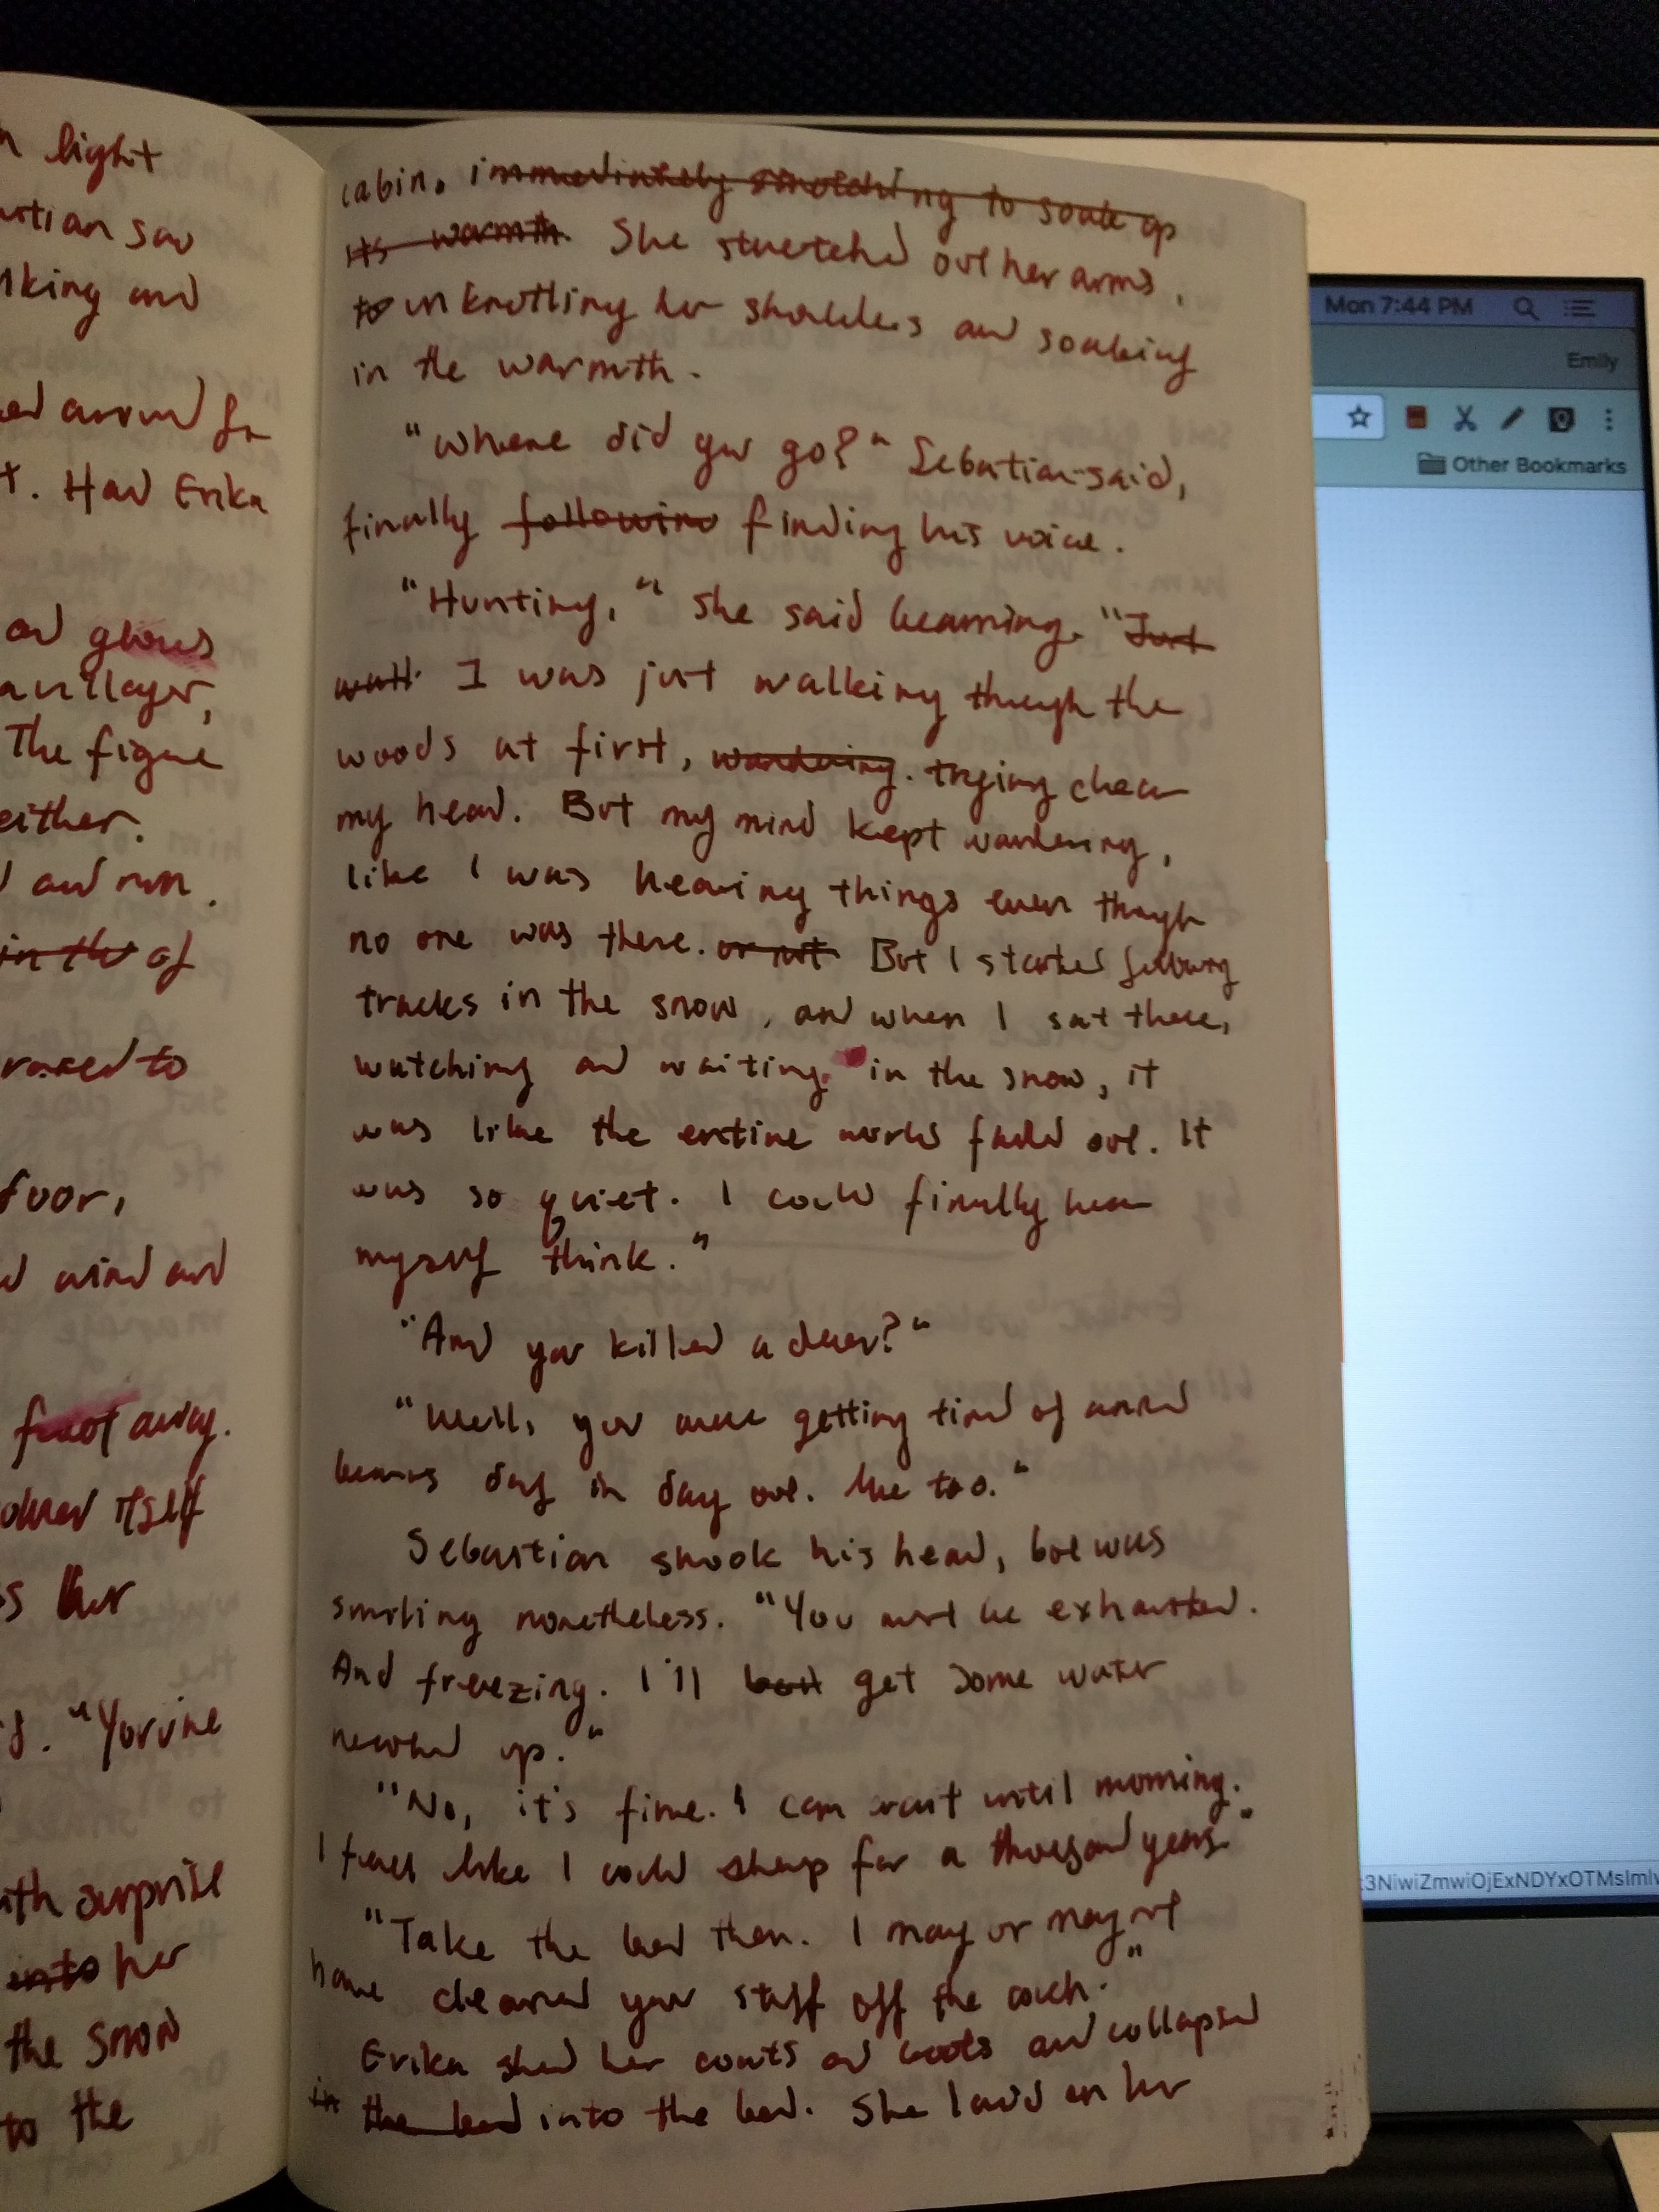 n light
stian saw
nking and
ed around for
t. Had Erika
and gloves
an layer,
The figure
either.
d and run.
in the of
raced to
door,
d wind and
foot away.
itself
s her
s. "You're
with surprise
into her
the snow
to the
cabin. immediately stretching to soak up
its warmth. She stretched out her arms,
to unknotting her shoulders and soaking
in the warmth.
"Where did you go?" Sebastian said,
finally following finding his voice.
"Hunting," she said beaming. "Just
walk I was just walking through the
woods at first, wandering. trying clear
my head. But my mind kept wandering,
like I was hearing things even though
no one was there. or not But I started following
tracks in the snow, and when I sat there,
watching and waiting. in the snow, it
was like the entire world faded out. It
was so quiet. I could finally hear
myself think."
"And you killed a deer?"
"Well, you were getting tired of canned
beans day in day out. Me too."
Sebastian shook his head, but was
smiling nonetheless. "You must be exhausted.
And freezing. I'll boil get some water
heated up."
"No, it's fine. I can wait until morning.
I feel like I could sleep for a thousand years."
"Take the bed then. I may or may not
have cleared your stuff off the couch."
Erika shed her coats and boots and collapsed
in the bed into the bed. She laid on her
Mon 7:44 PM
Emily
Other Bookmarks
:3NiwiZmwiOjExNDYxOTMsImlv